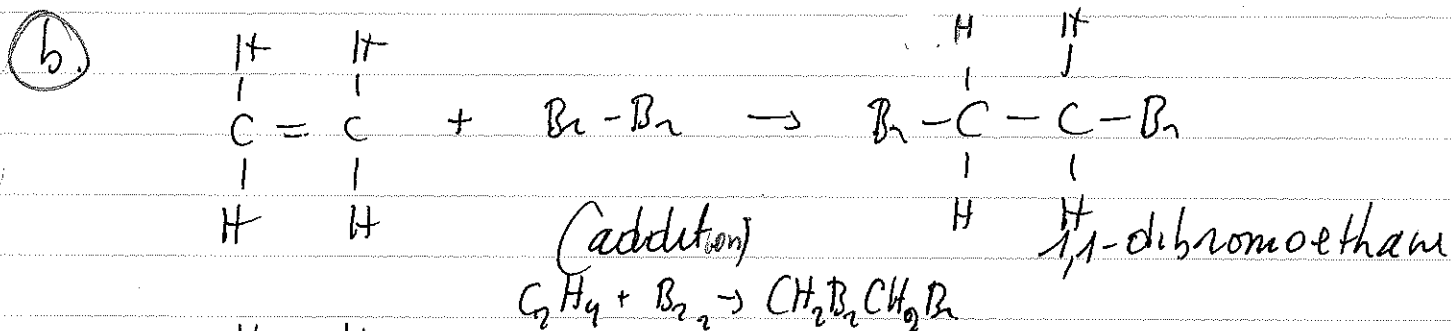 b.
H H H H
| | | |
C = C + Br - Br → Br - C - C - Br
| | | |
H H H H
(addition) 1,1-dibromoethane
C₂H₄ + Br₂ → CH₂BrCH₂Br